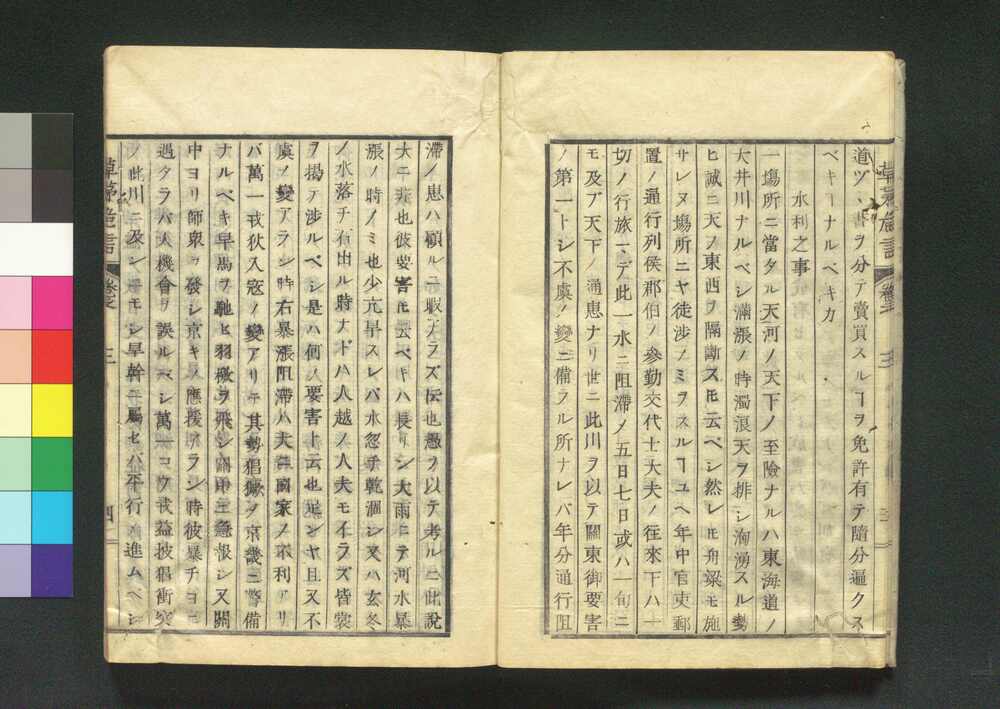 道ヅヽヲ分テ賣買スルヿヲ免許有テ隨分遍クス
ベキヿナルベキカ
水利之事
一塲所ニ當タル天河ノ天下ノ至險ナルハ東海道ノ
大井川ナルベシ滿漲ノ時濁浪天ヲ排シ洶湧スル勢
ヒ誠ニ天ノ東西ヲ隔斷スヒ云ベシ然レモ舟梁モ施
サレヌ塲所ニヤ徒渉ノミヲスルヿユヘ年中官吏郵
置ノ通行列侯郡伯ノ參勤交代士大夫ノ往來下ハ一
切ノ行旅マデ此一水ニ阻滯ノ五日七日或ハ一旬ニ
モ及ブ天下ノ通患ナリ世ニ此川ヲ以テ關東御要害
ノ第一トシ不虞ノ變ニ備フル所ナレバ年分通行阻
滯ノ患ハ顧ルニ暇アラズ𪜈也愚ヲ以テ考ルニ此說
大ニ非也彼要害𪜈云ベキハ長リシ大雨ニテ河水暴
漲ノ時ノミ也少亢旱スレバ水忽チ乾涸シ又ハ玄冬
ノ水落チ石出ル時ナドハ人越ノ人夫モイラズ皆裳
ヲ揭テ涉ルベシ是ハ何ノ要害ト云也足ンヤ且又不
虞ノ變アラン時右暴漲阻滯ハ夫ニ國家ノ不利アリ
バ萬一戎狄入寇ノ變アリテ其勢猖獗ヲ京畿ニ警備
ナルベキ早馬ヲ馳ヒ羽檄ヲ飛シ關東ニ急報シ又關
中ヨリ師衆ヲ發シ京キノ應援アラン時彼暴チヨニ
遇タラバ大機會ヲ誤ルベシ萬一コウ戎益披猖衝突
ノ此川ニ及シニモシ旱幹ニ屬セバ平行 進ムベシ
草茅危言
卷之
三
四